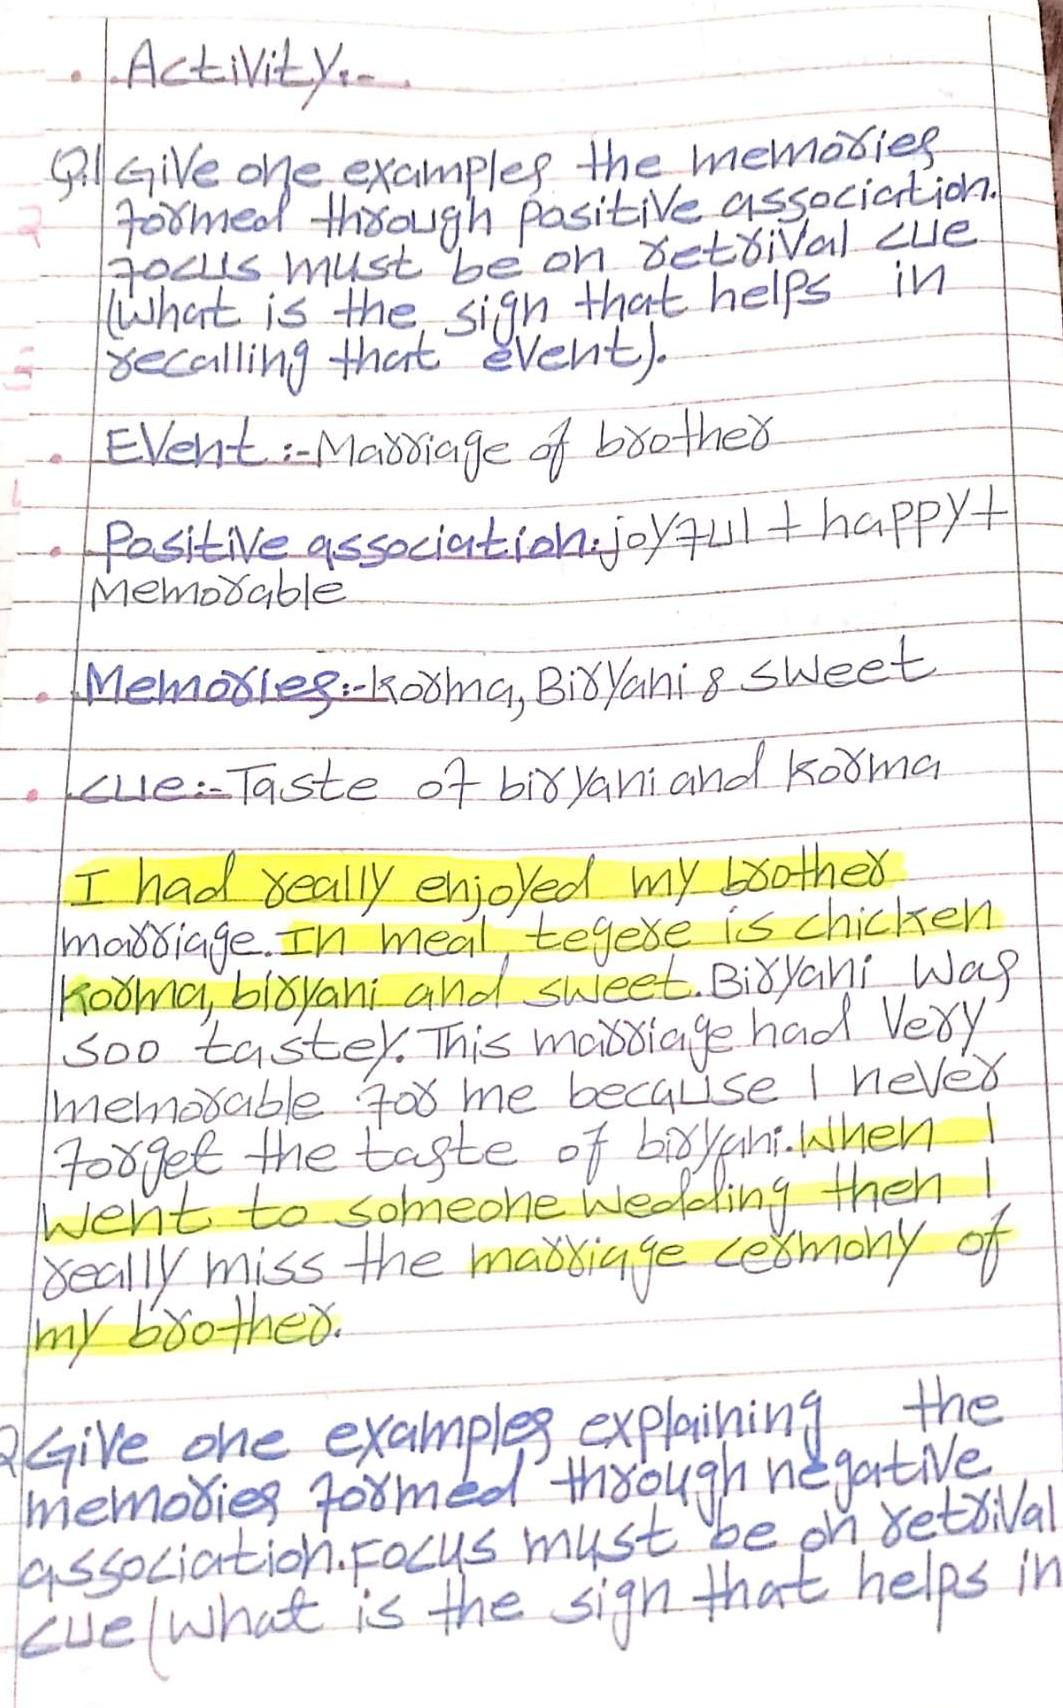 Activity:-
Q.1 Give one examples the memories
formed through positive association.
Focus must be on retrival cue
(what is the sign that helps in
recalling that event).
Event :- Marriage of brother
Positive association: joyful + happy +
Memorable
Memories:- Korma, Biryani & sweet
cue:- Taste of biryani and korma
I had really enjoyed my brother
marriage. In meal tegere is chicken
korma, biryani and sweet. Biryani was
soo tastey. This marriage had very
memorable for me because I never
forget the taste of biryani. When I
went to someone wedding then I
really miss the marriage cermony of
my brother.
2 Give one examples explaining the
memories formed through negative
association. Focus must be on retrival
cue (what is the sign that helps in